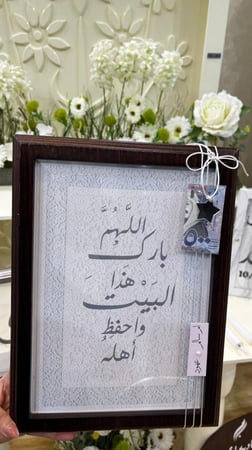 اللَّهُمَّ
بارك
هذا
البَيْتَ
واحفظ
أهله